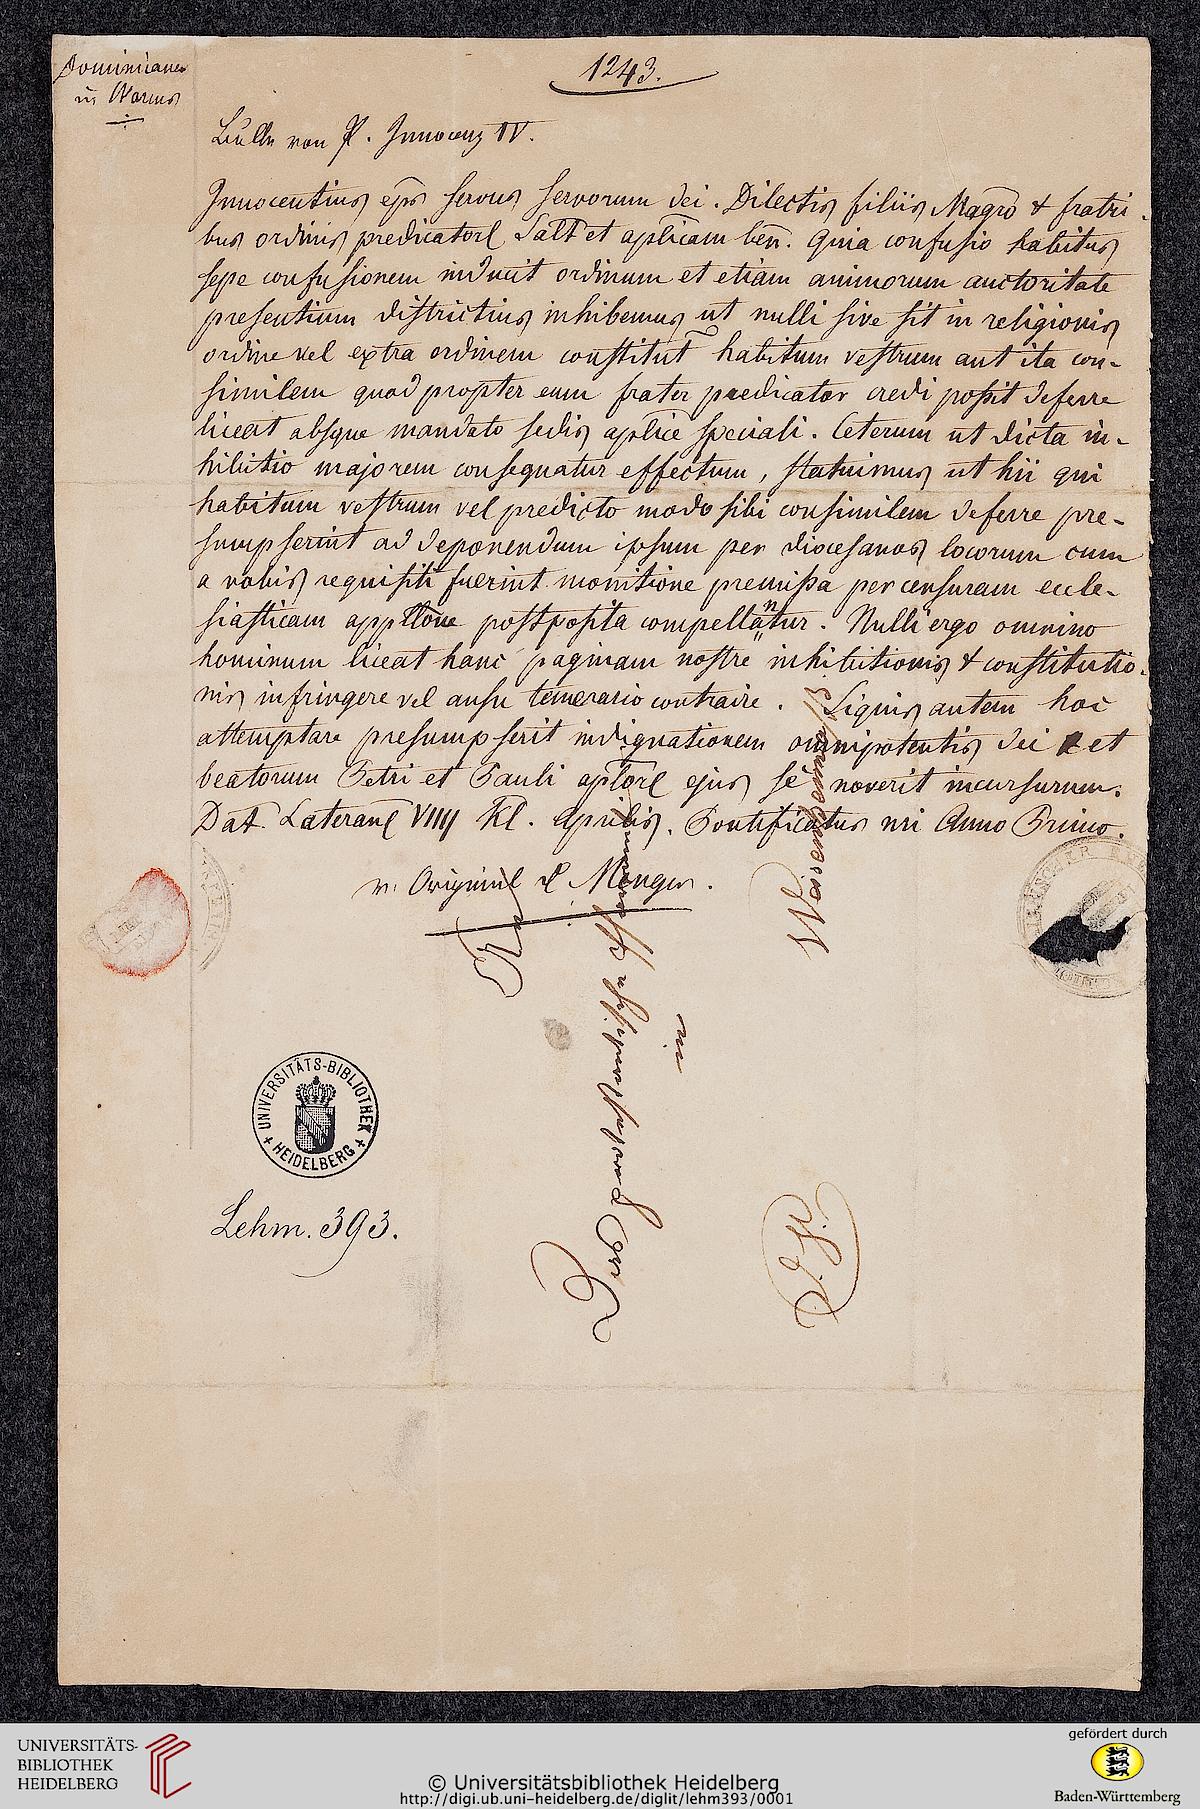 Dominicaner
in Worms
1243.
Bulle von P. Innocenz IV.
Innocentius eps servus servorum dei. Dilectis filiis Magro & fratri-
bus ordinis predicatorl Salt et aplicam ben. Quia confusio habitus
sepe confusionem inducit ordinum et etiam animorum auctoritate
presentium districtius inhibemus ut nulli sive sit in religionis
ordine vel extra ordinem constitut habitum vestrum aut ita con-
similem quod propter eum frater predicator credi possit deferre
liceat absque mandato sedis aplice speciali. Ceterum ut dicta in-
hibitio majorem consequatur effectum, statuimus ut hii qui
habitum vestrum vel predicto modo sibi consimilem deferre pre-
sumpserint ad deponendum ipsum per diocesanos locorum cum
a vobis requisiti fuerint monitione premissa per censuram eccle-
siasticam appllone postposita compellantur. Nulli ergo omnino
hominum liceat hanc paginam nostre inhibitionis & constitutio-
nis infringere vel ausu temerario contraire. Siquis autem hoc
attemptare presumpserit indignationem omnipotentis dei et
beatorum Petri et Pauli aptorl ejus se noverit incursurum.
Dat. Lateranl VIIII Kl. Aprilis. Pontificatus nri Anno Primo.
v. Original d Monger.
in
UNIVERSITÄTS-BIBLIOTHEK
+ HEIDELBERG +
Lehm. 393.
UNIVERSITÄTS-
BIBLIOTHEK
HEIDELBERG
© Universitätsbibliothek Heidelberg
http://digi.ub.uni-heidelberg.de/diglit/lehm393/0001
gefördert durch
Baden-Württemberg